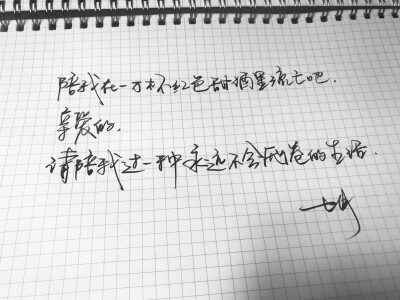 陪我在一杯红色甜酒里流亡吧.
亲爱的.
请陪我过一种永远不会厌卷的生活.